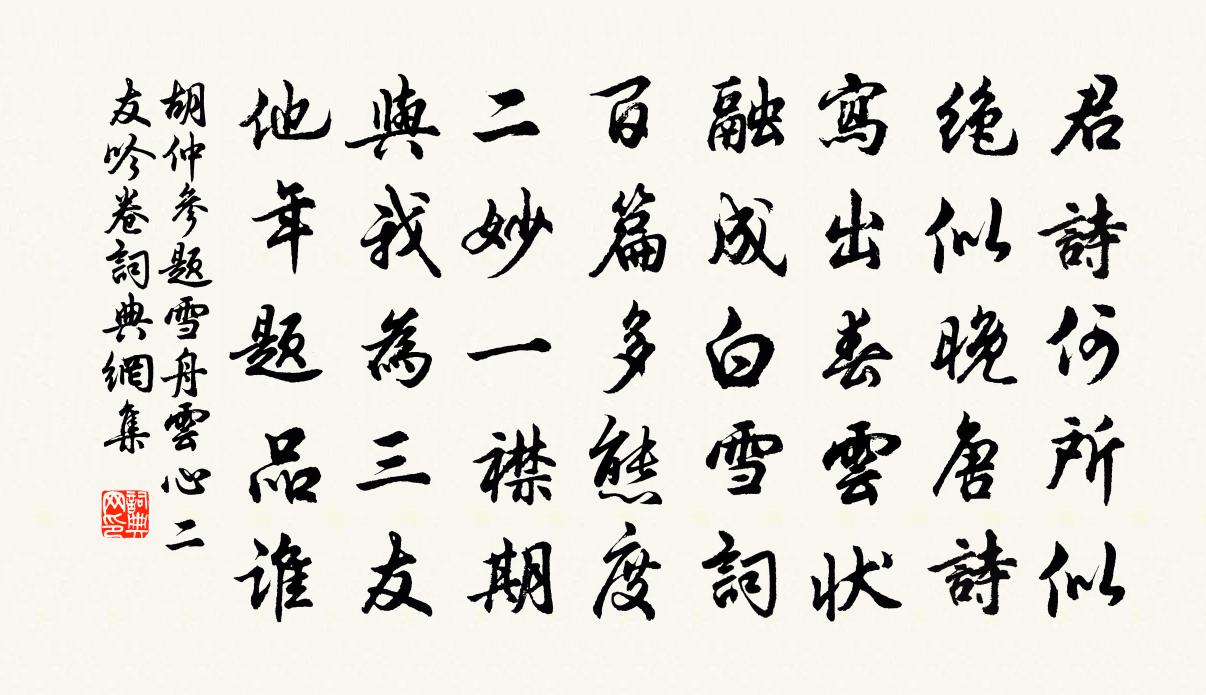 君詩何所似
絶似晚唐詩
寫出春雲狀
融成白雪詞
百篇多態度
二妙一襟期
與我為三友
他年題品誰
胡仲參題雪舟雲心二
友吟卷詞典網集
詞典
网印